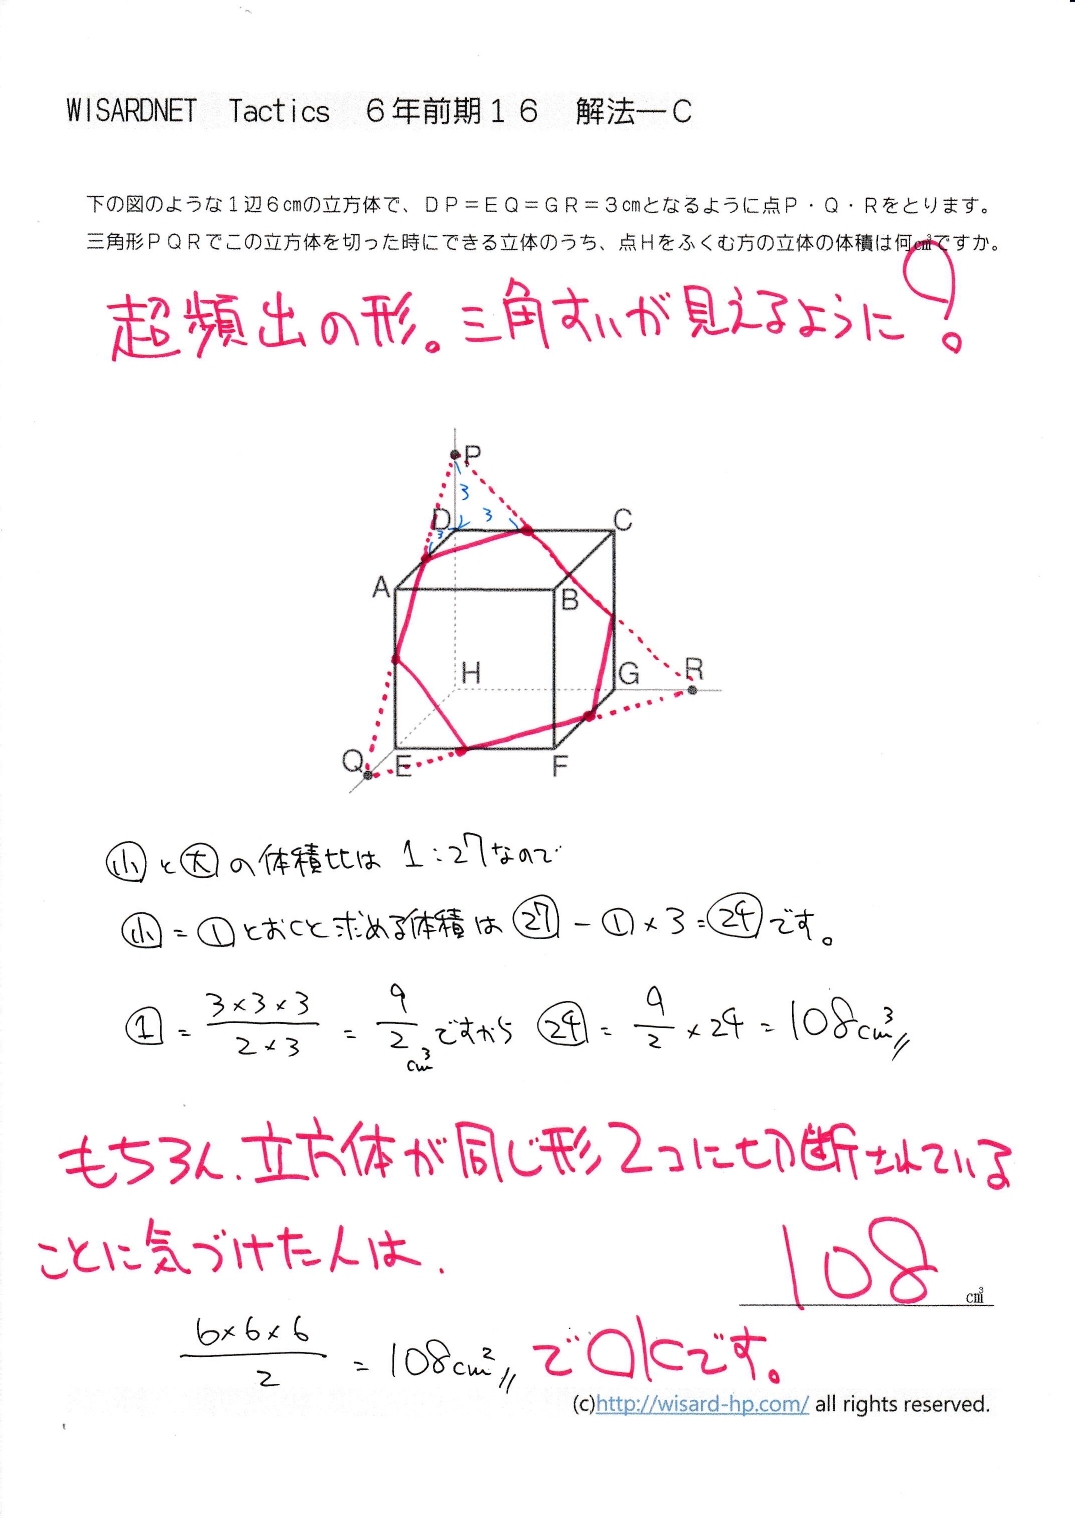 WISARDNET　Tactics　６年前期１６　解法―Ｃ
下の図のような１辺６㎝の立方体で、ＤＰ＝ＥＱ＝ＧＲ＝３㎝となるように点Ｐ・Ｑ・Ｒをとります。
三角形ＰＱＲでこの立方体を切った時にできる立体のうち、点Ｈをふくむ方の立体の体積は何㎤ですか。
超頻出の形。三角すいが見えるように!
P
3
D 3 C
3
A B
H G R
Q E F
小と大の体積比は 1:27なので
小=①とおくと求める体積は ㉗-①×3=㉔です。
① = 3×3×3/2×3 = 9/2 cm³ ですから ㉔ = 9/2 × 24 = 108cm³
もちろん、立方体が同じ形2コに切断されている
ことに気づけた人は、
108 ㎤
6×6×6/2 = 108cm² でOKです。
(c)http://wisard-hp.com/ all rights reserved.